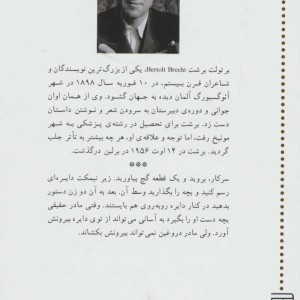 برتولت برشت Bertolt Brecht، یکی از بزرگ‌ترین نویسندگان و
شاعران قرن بیستم، در ۱۰ فوریه سال ۱۸۹۸ در شهر
آگوسبورگ آلمان دیده به جهان گشود. وی از همان اوان
جوانی و دوره‌ی دبیرستان به سرودن شعر و نوشتن داستان
دست زد. برشت برای تحصیل در رشته‌ی پزشکی به شهر
مونیخ رفت، اما توجه و علاقه‌ی او، هر چه بیشتر به تأتر جلب
گردید. برشت در ۱۴ اوت ۱۹۵۶ در برلین درگذشت.
***
سرکار، بروید و یک قطعه گچ بیاورید. زیر نیمکت دایره‌ای
رسم کنید و بچه را بگذارید وسط آن. بعد به آن دو زن دستور
بدهید در کنار دایره روبه‌روی هم بایستند. وقتی مادر حقیقی
بچه دست او را بگیرد به آسانی می‌تواند از توی دایره بیرونش
آورد. ولی مادر دروغین نمی‌تواند بیرونش بکشاند.